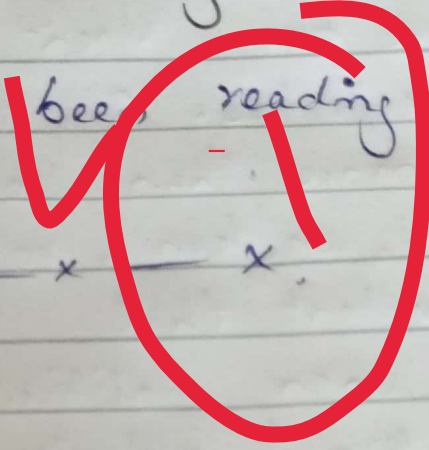 been reading
— x — x.